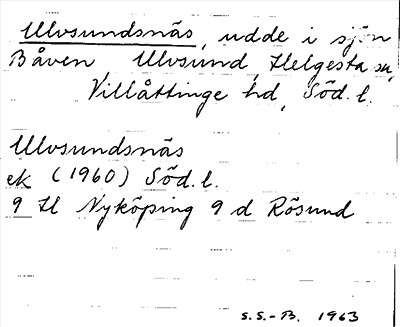 Ulvsundsnäs, udde i sjön
Båven Ulvsund, Helgesta sn,
Villåttinge hd, Söd. l.
Ulvsundsnäs
ek (1960) Söd. l.
9 H Nyköping 9 d Rösund
S.S.-B. 1963